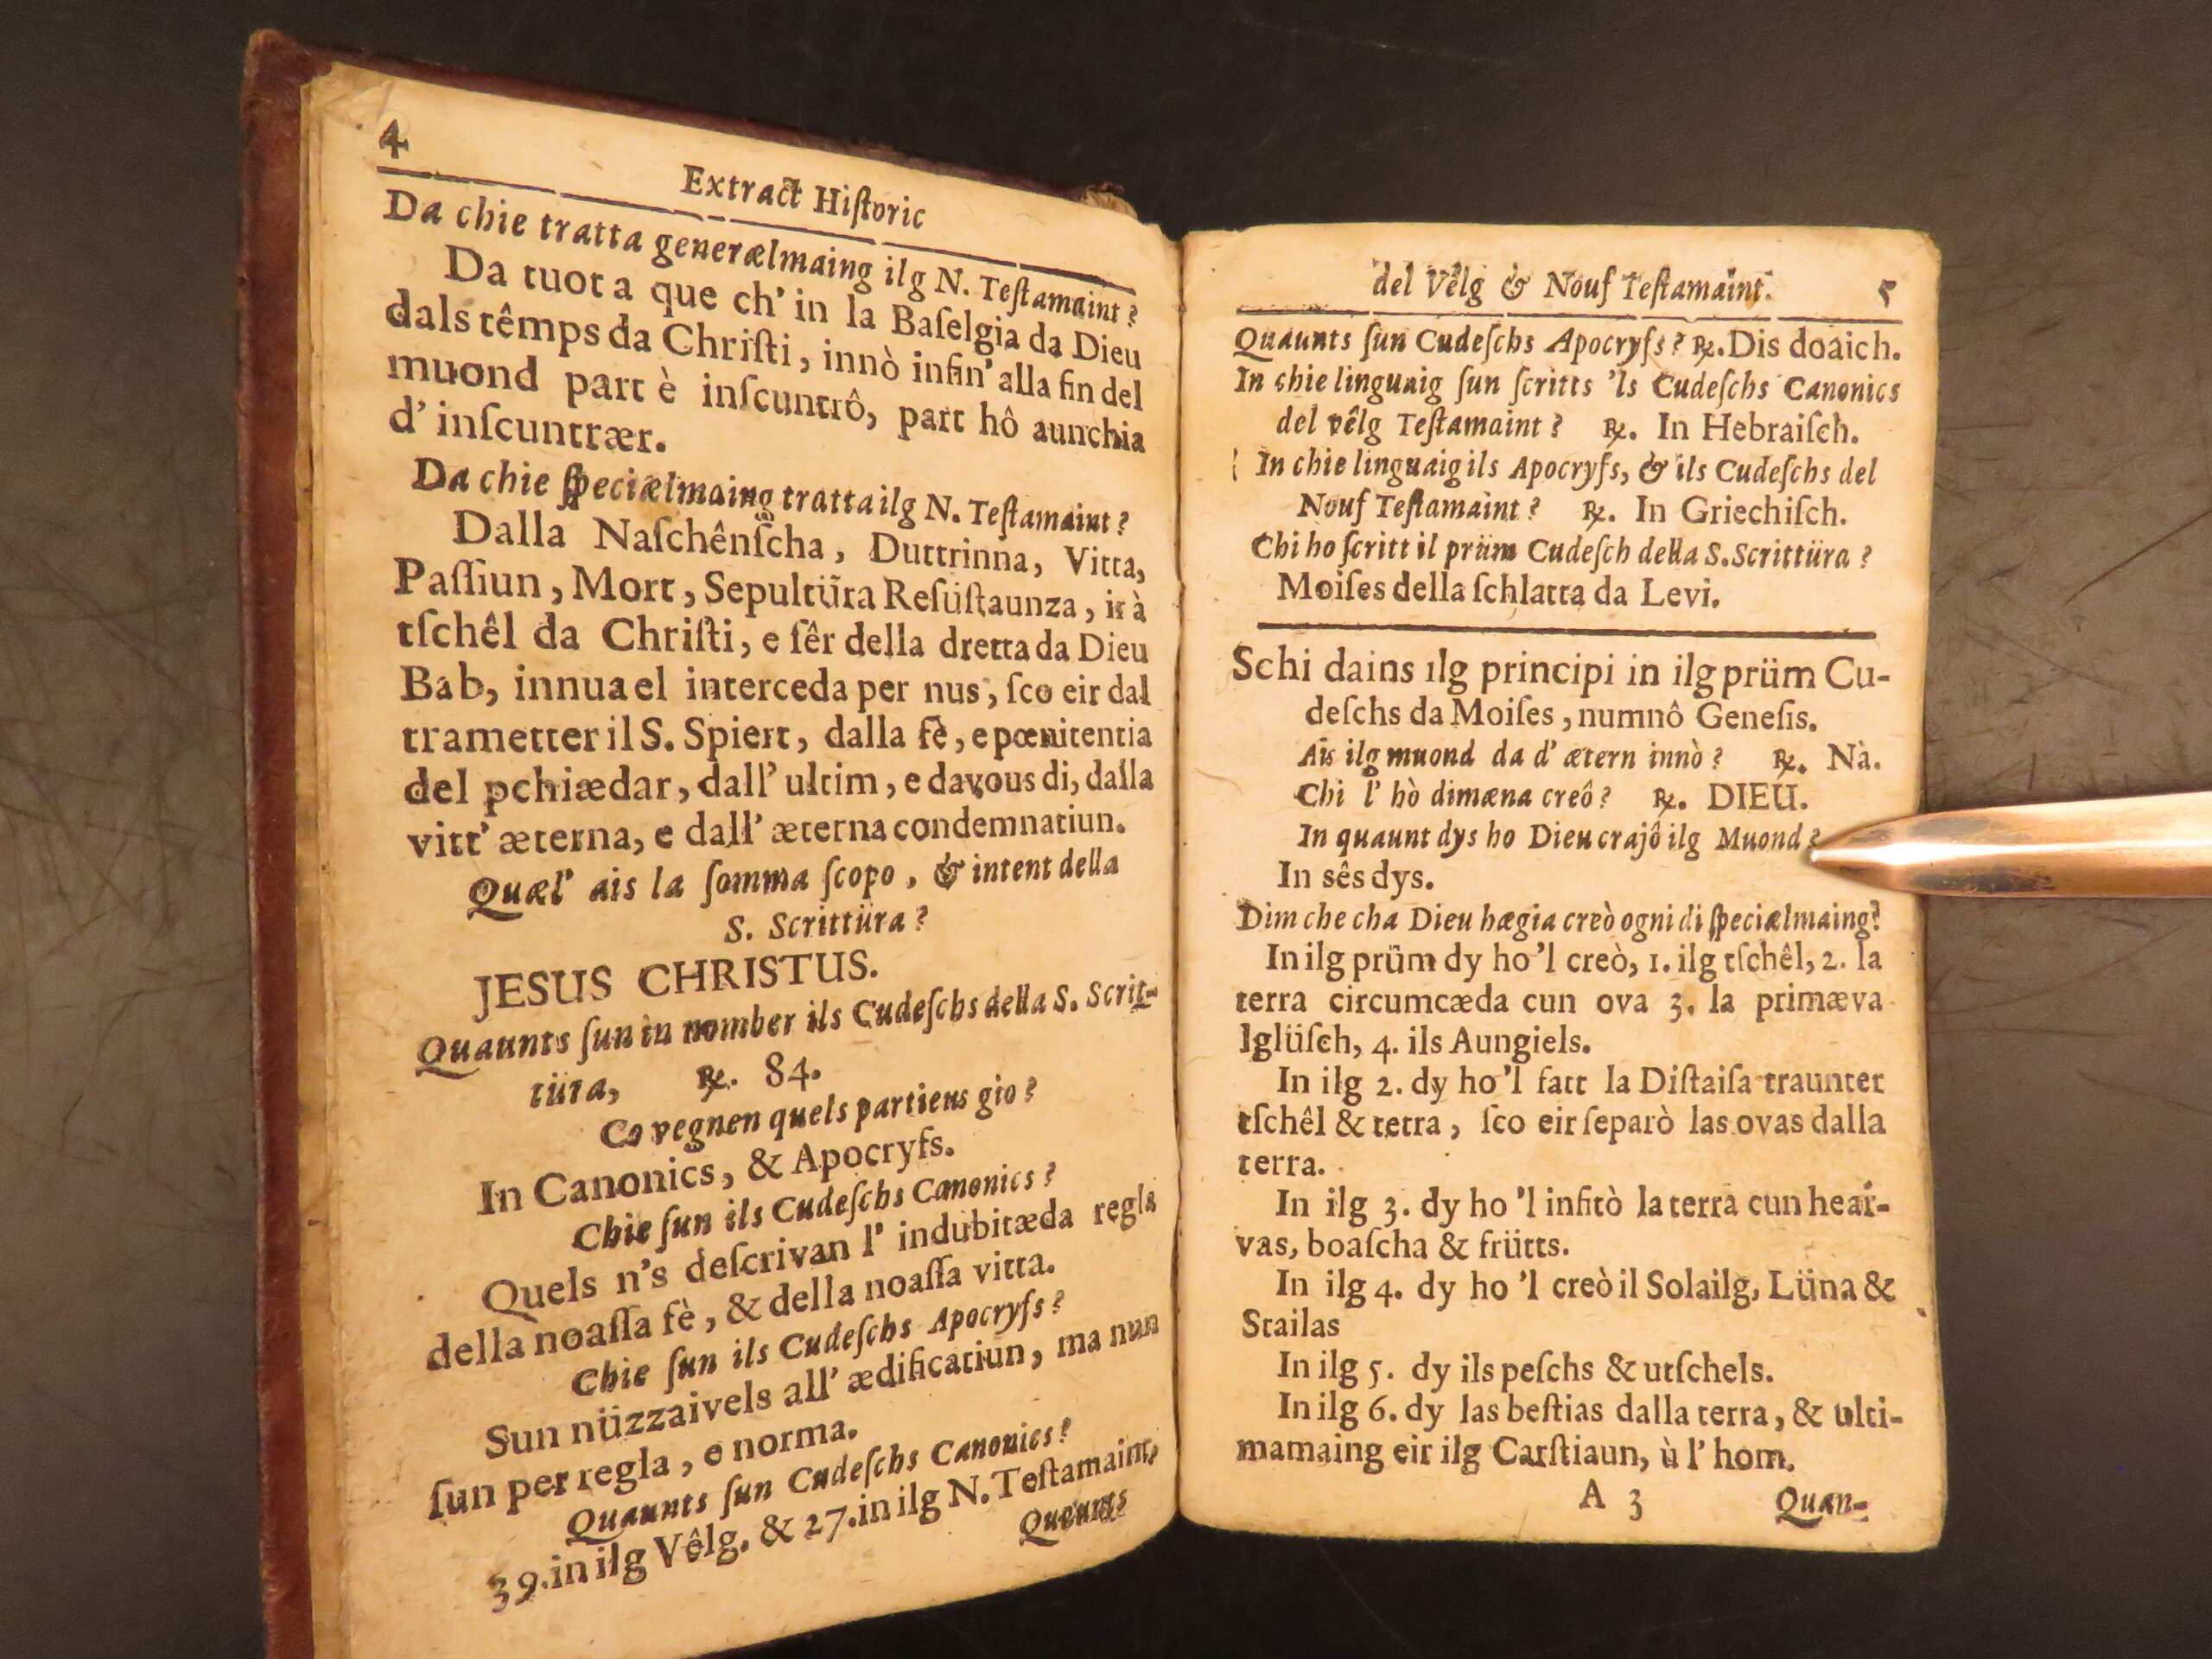 4
Extract Hiſtoric
Da chie tratta generælmaing ilg N. Teſtamaint?
Da tuot a que ch' in la Baſelgia da Dieu
dals têmps da Chriſti, innò infin' alla fin del
muond part è inſcuntrô, part hô aunchia
d' inſcuntrær.
Da chie ſpeciælmaing tratta ilg N. Teſtamaint?
Dalla Naſchênſcha, Duttrinna, Vitta,
Paſſiun, Mort, Sepultüra Reſüſtaunza, ir à
tſchêl da Chriſti, e ſêr della dretta da Dieu
Bab, innua el interceda per nus, ſco eir dal
trametter il S. Spiert, dalla fè, e pœnitentia
del pchiædar, dall' ultim, e davous di, dalla
vitt' æterna, e dall' æterna condemnatiun.
Quæl' ais la ſomma ſcopo, & intent della
S. Scrittüra?
JESUS CHRISTUS.
Quaunts ſun in nomber ils Cudeſchs della S. Scrit-
türa, ℞. 84.
Co vegnen quels partieus gio?
In Canonics, & Apocryfs.
Chie ſun ils Cudeſchs Canonics?
Quels n's deſcrivan l' indubitæda regla
della noaſſa fè, & della noaſſa vitta.
Chie ſun ils Cudeſchs Apocryfs?
Sun nüzzaivels all' ædificatiun, ma nun
ſun per regla, e norma.
Quaunts ſun Cudeſchs Canonics?
39. in ilg Vêlg. & 27. in ilg N. Teſtamaint,
Quaunts
del Vêlg & Nouf Teſtamaint. 5
Quaunts ſun Cudeſchs Apocryfs? ℞. Dis doaich.
In chie linguaig ſun ſcritts 'ls Cudeſchs Canonics
del vêlg Teſtamaint? ℞. In Hebraiſch.
In chie linguaig ils Apocryfs, & ils Cudeſchs del
Nouf Teſtamaint? ℞. In Griechiſch.
Chi ho ſcritt il prüm Cudeſch della S. Scrittüra?
Moiſes della ſchlatta da Levi.
Schi dains ilg principi in ilg prüm Cu-
deſchs da Moiſes, numnô Geneſis.
Ais ilg muond da d' ætern innò? ℞. Nà.
Chi l' hò dimæna creô? ℞. DIEU.
In quaunt dys ho Dieu crajô ilg Muond?
In sês dys.
Dim che cha Dieu hægia creò ogni di ſpeciælmaing?
In ilg prüm dy ho 'l creò, 1. ilg tſchêl, 2. la
terra circumcæda cun ova 3. la primæva
lglüſch, 4. ils Aungiels.
In ilg 2. dy ho 'l fatt la Diſtaiſa traunter
tſchêl & terra, ſco eir ſeparò las ovas dalla
terra.
In ilg 3. dy ho 'l infitò la terra cun hear-
vas, boaſcha & frütts.
In ilg 4. dy ho 'l creò il Solailg, Lüna &
Stailas
In ilg 5. dy ils peſchs & utſchels.
In ilg 6. dy las beſtias dalla terra, & ulti-
mamaing eir ilg Carſtiaun, ù l' hom.
A 3 Quan-